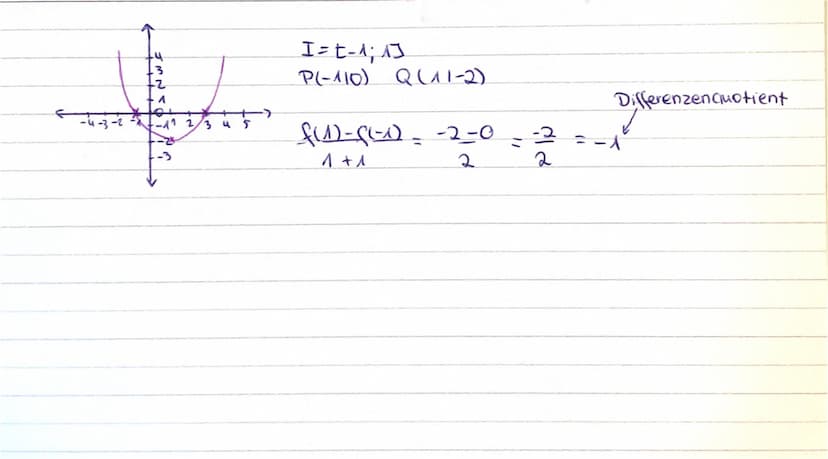 4
3
2
1
0
-4 -3 -2 -1 -1 1 2 3 4 5
-2
-3
I = [-1; 1]
P(-1|0) Q(1|-2)
Differenzenquotient
f(1)-f(-1) / 1+1 = -2-0 / 2 = -2 / 2 = -1